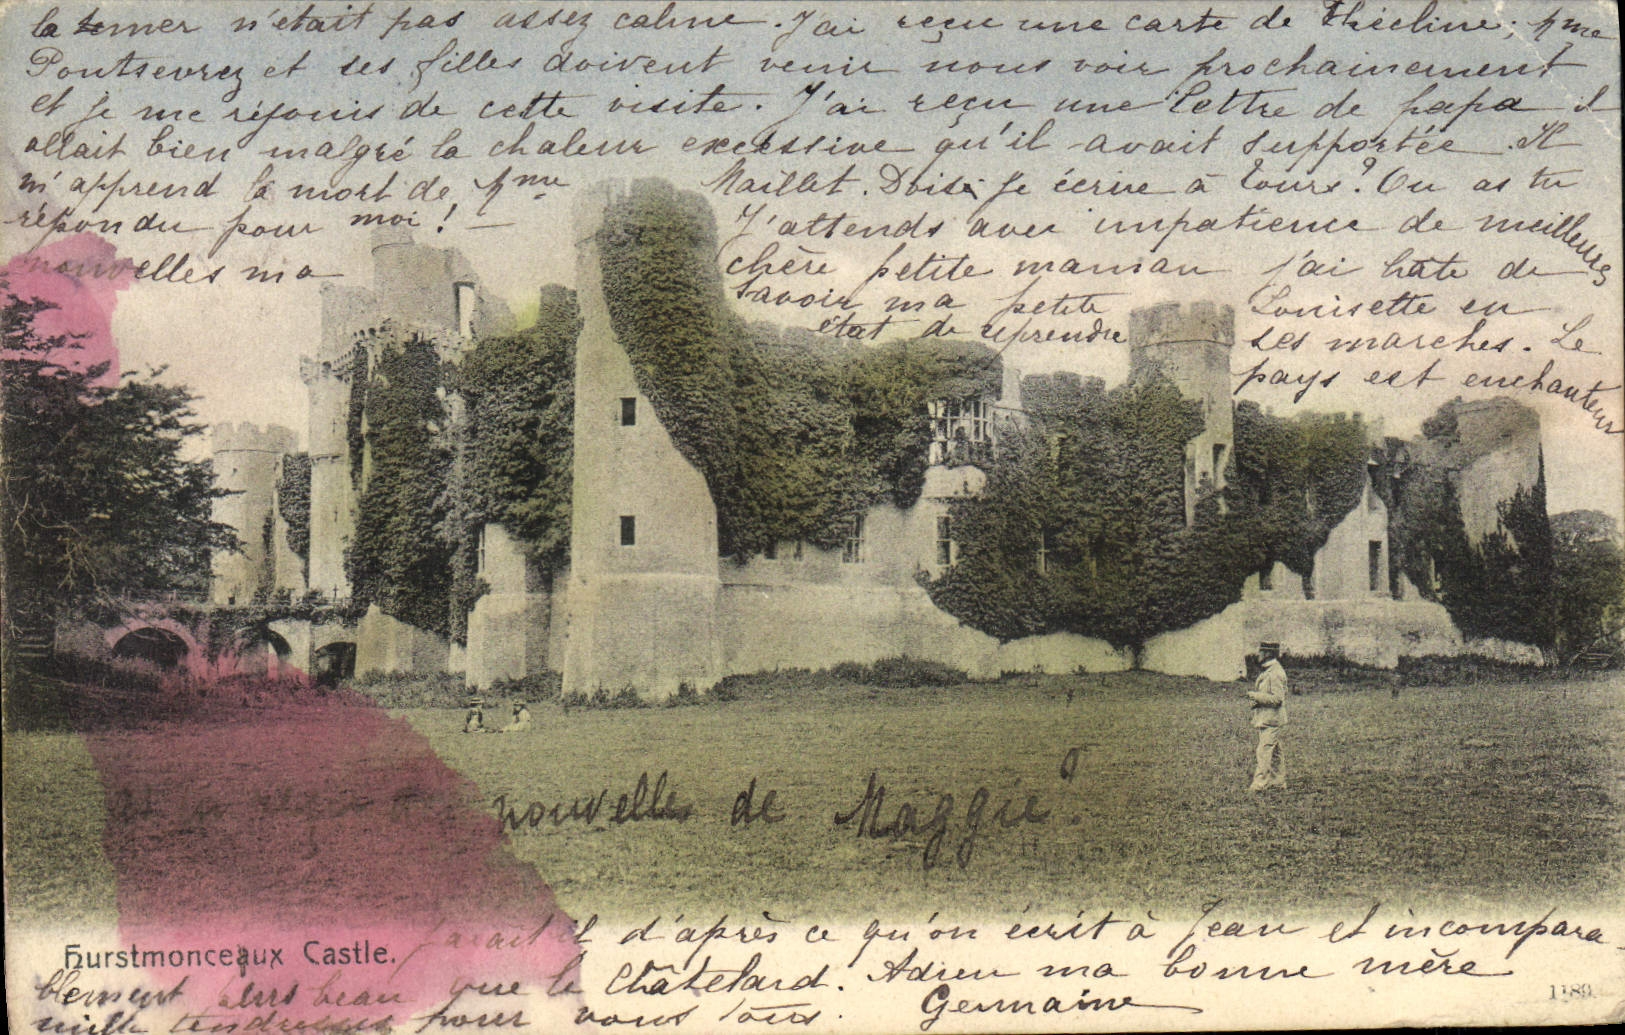 la mer n'était pas assez calme. J'ai reçu une carte de Thécline; Mme
Pontsevrez et ses filles doivent venir nous voir prochainement
et je me réjouis de cette visite. J'ai reçu une lettre de papa il
allait bien malgré la chaleur excessive qu'il avait supportée. Il
m'apprend la mort de Mme Maillet. Dois-je écrire à Tours? Ou as tu
répondu pour moi! — J'attends avec impatience de meilleures
nouvelles ma chère petite maman j'ai hâte de
savoir ma petite Louisette en
état de reprendre ses marches. Le
pays est enchanteur
nouvelles de Maggie?
Hurstmonceaux Castle.
parait il d'après ce qu'on écrit à Jean et incompara-
blement plus beau que le Châtelard. Adieu ma bonne mère
mille tendresses pour vous tous. Germaine
1189.